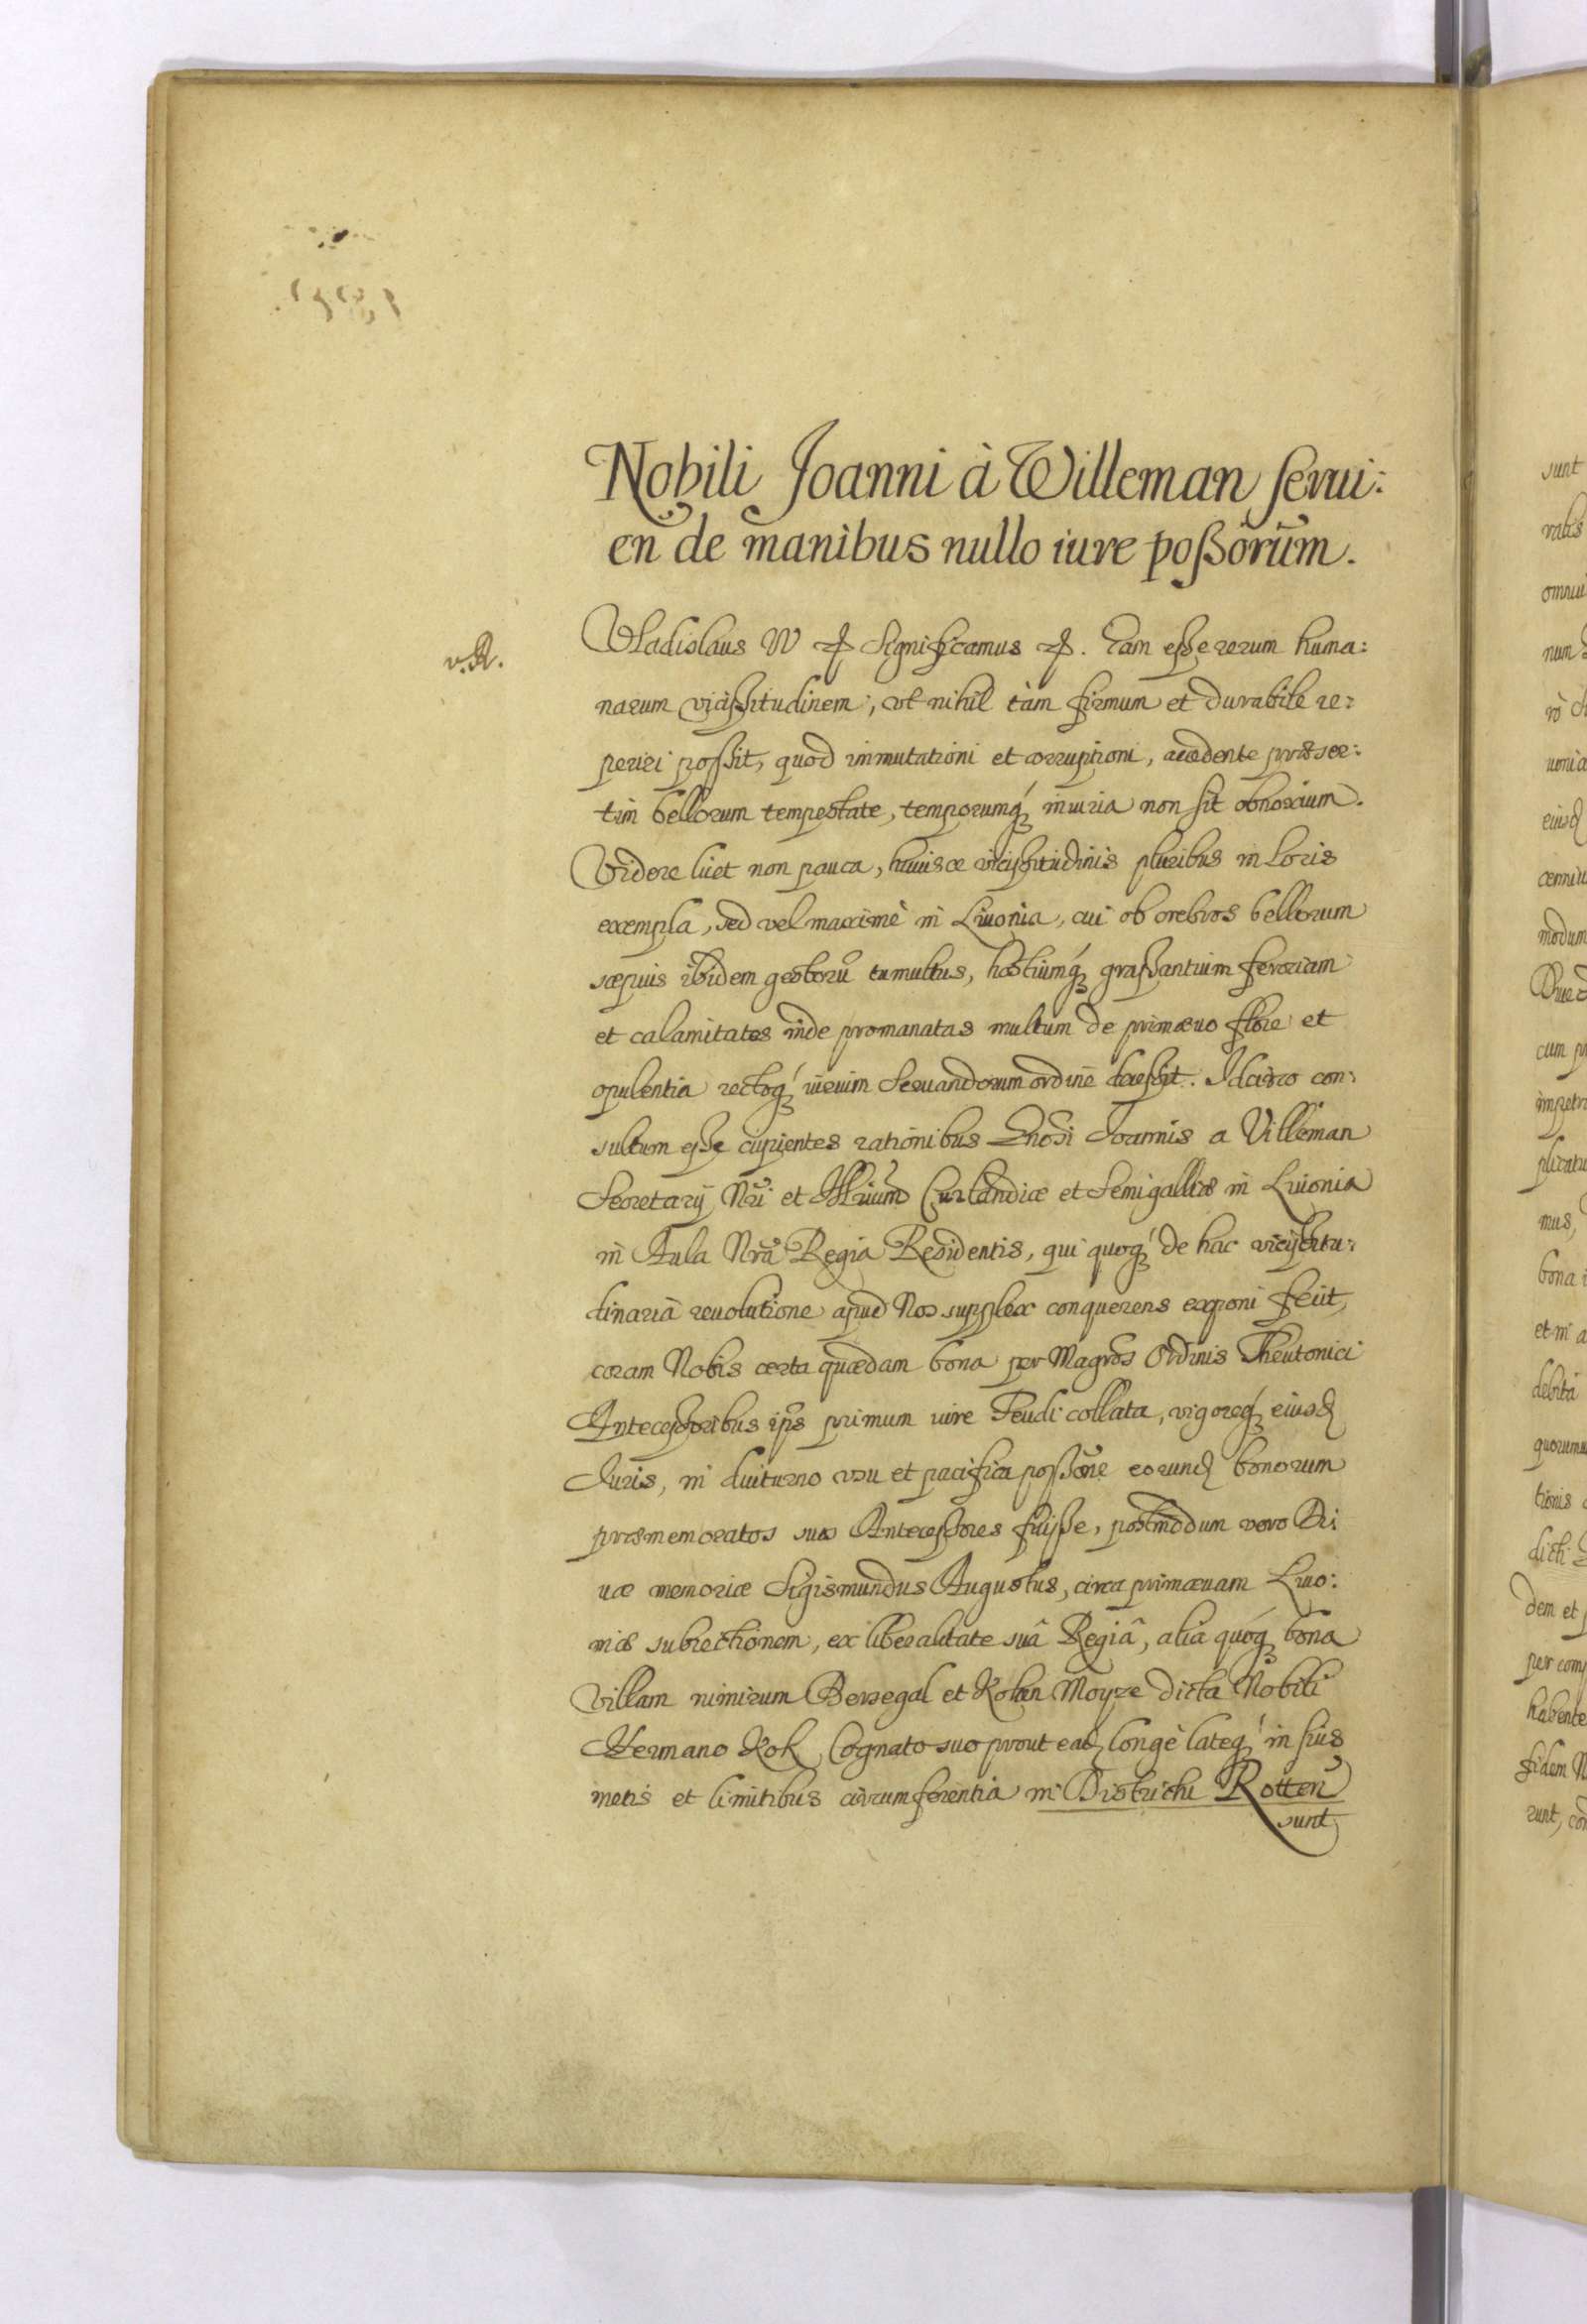 Nobili Joanni à Willeman serui:
en de manibus nullo iure poßorũm.
v. R.
Vladislaus IV etc Significamus etc. Eam eße rerum huma:
narum vicißitudinem, vt nihil tàm firmum et durabile re:
periri poßit, quod immutationi et corruptioni, accedente præser:
tim bellorum tempestate, temporumq́ꝫ iniuria non sit obnoxium.
Videre licet non pauca, huiusce vicißitudinis pluribus in Locis
exempla, sed vel maximè in Liuonia, cui ob crebros bellorum
sæpius ibidem gestorũ tumultus, hostiumq́ꝫ graßantium ferociam
et calamitates inde promanatas multum de primæuo flore et
opulentia rectoq́ꝫ rerum Seruandorum ordine deceßit. Idcirco con:
sultum eße cupientes rationibus Gnosi Joannis a Villeman
Secretarij Nrĩ et Illriũm Curlandiæ et Semigalliæ in Liuonia
in Aula Nrã Regia Residentis, qui quoq́ꝫ de hac vicißitu:
dinaria reuolutione apud Nos supplex conquerens exponi fecit,
coram Nobis certa quædam bona per Magrõs Ordinis Theutonici
Anteceßoribus ips̃ primum iure Feudi collata, vigoreq́ꝫ eiusd
Juris, in diuturno vsu et pacifica poßõne eorund bonorum
præmemoratos suos Anteceßores fuiße, postmodum vero Di
uæ memoriæ Sigismundus Augustus, circa primæuam Liuo:
niæ subiectionem, ex liberalitate suâ Regiâ, alia quoq́ꝫ bona
Villam nimirum Bersegal et Koken Moyze dicta Nobili
Hermano Kok Cognato suo prout ead longè lateq́ꝫ in suis
metis et limitibus circumferentia in Districtu Rotten
sunt